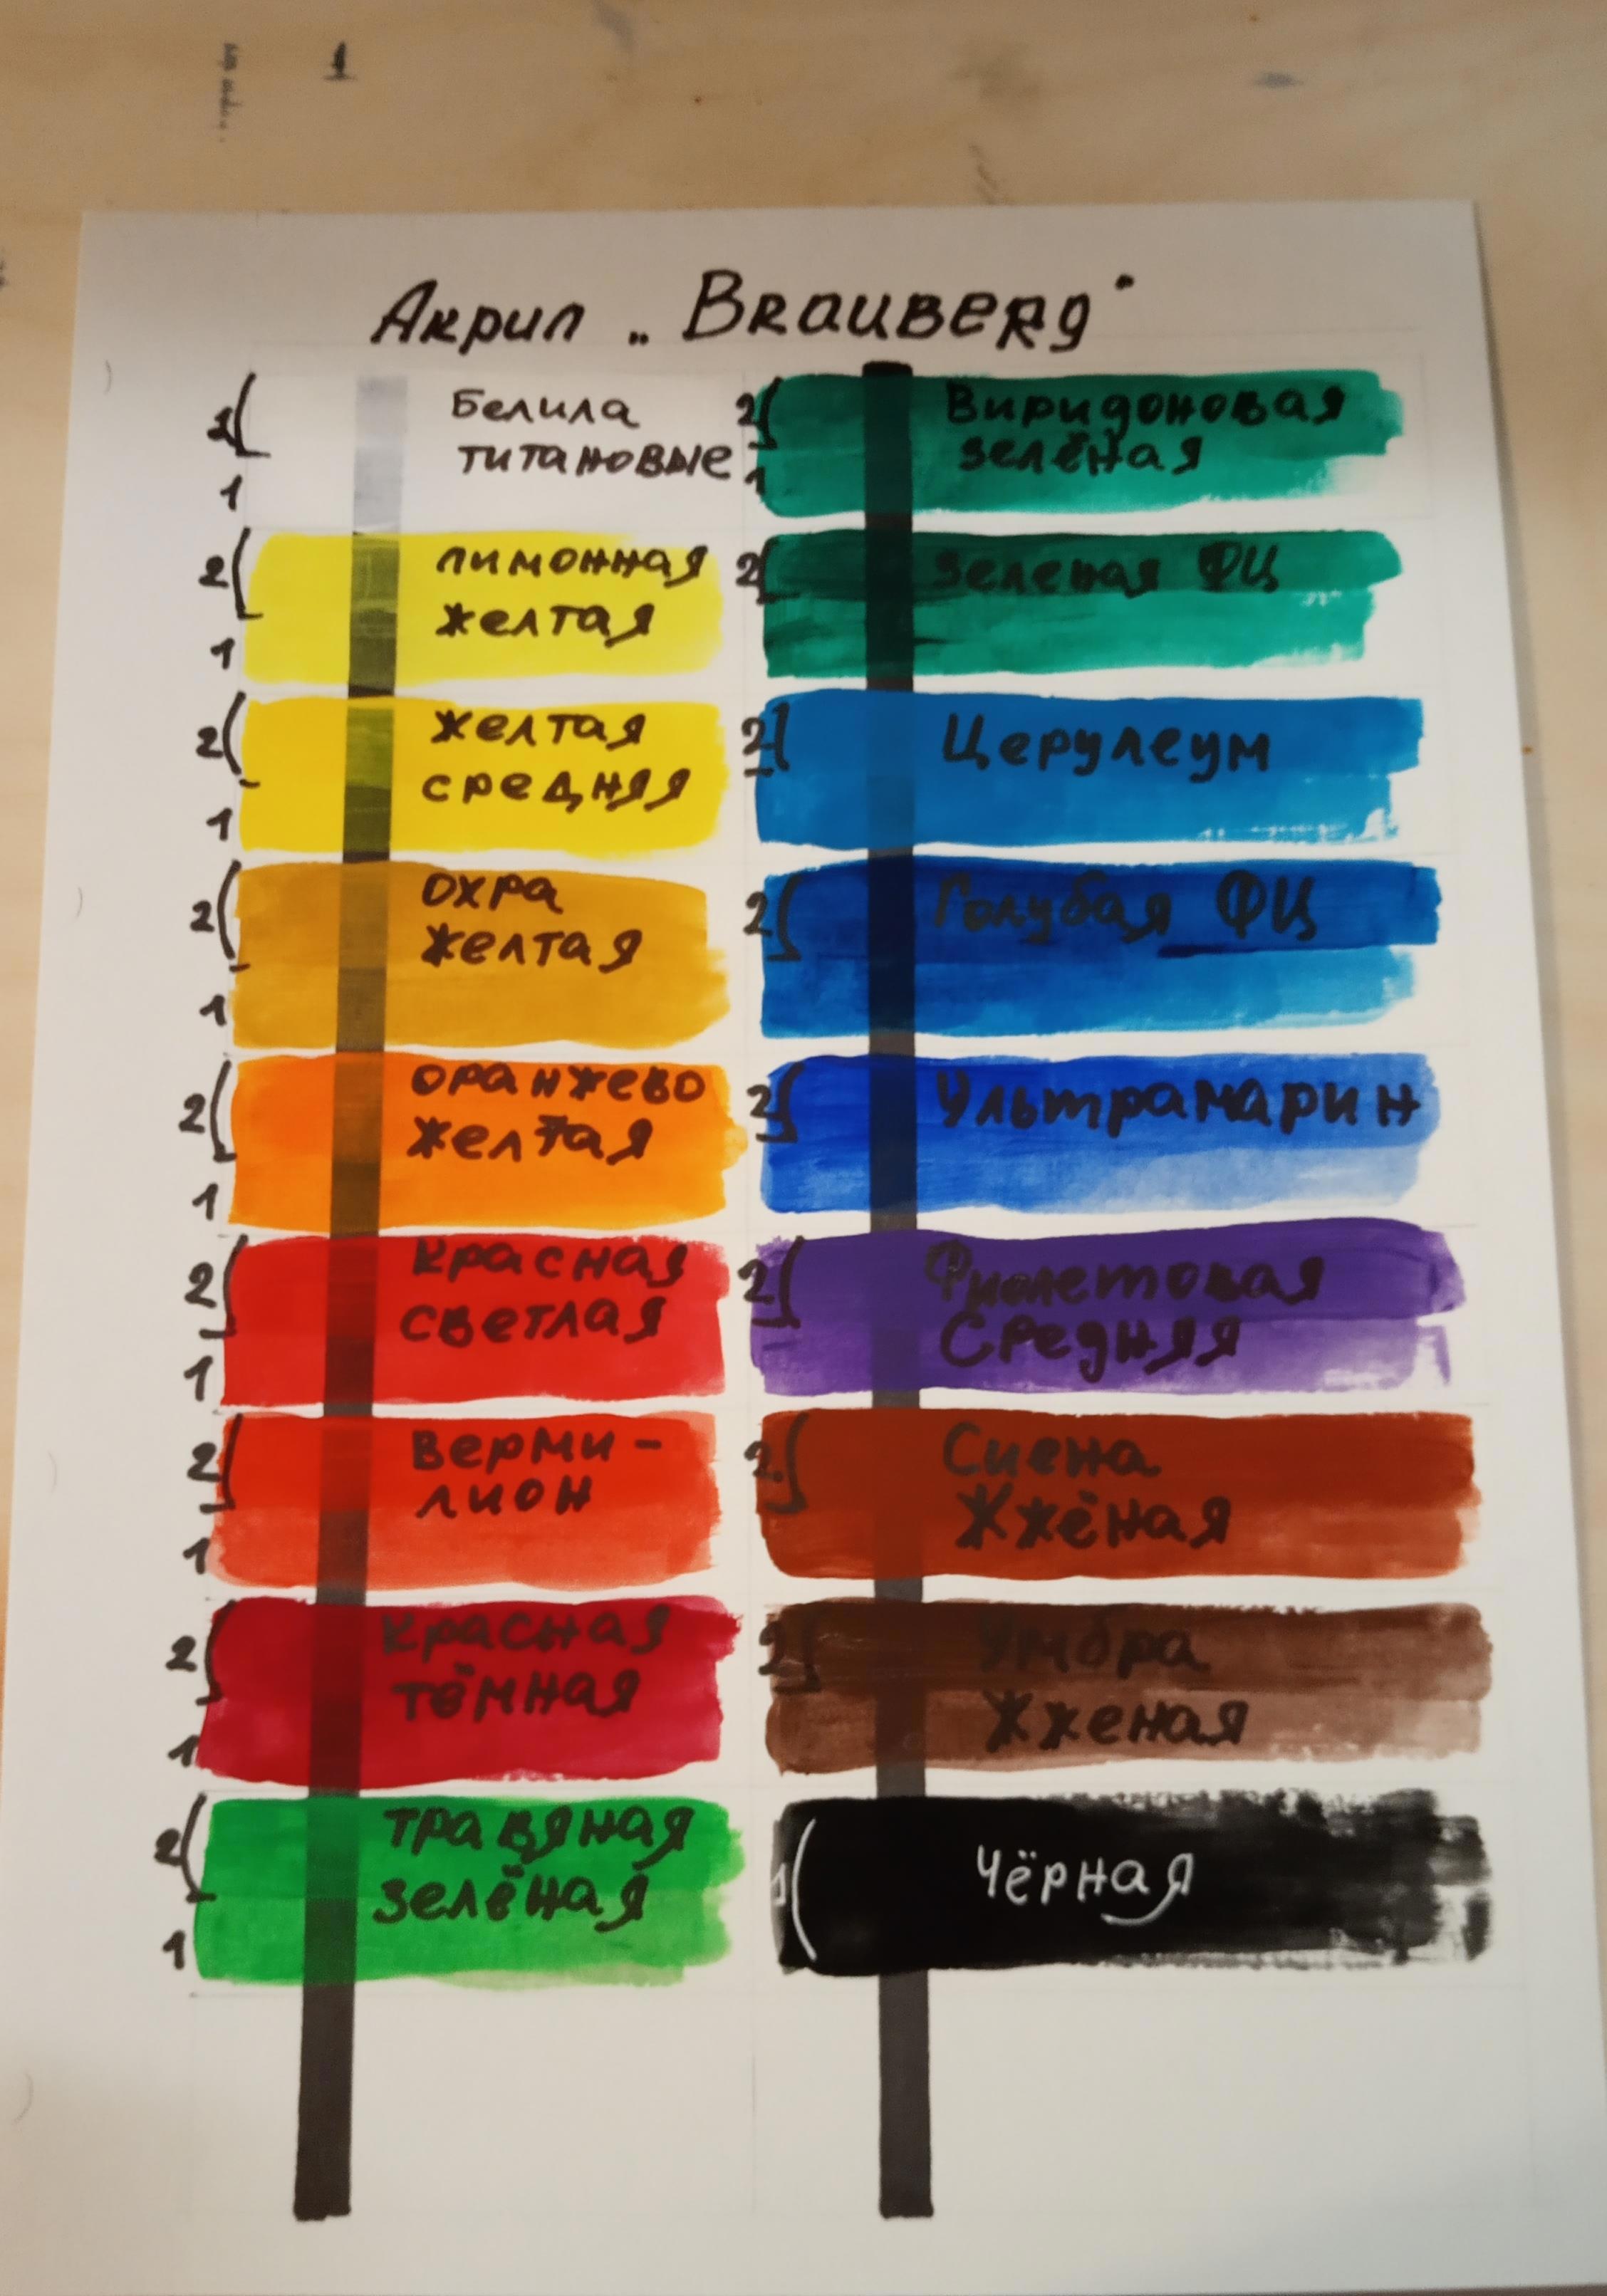 1
Акрил „Brauberg"
2
Белила
титановые
1
2
лимонная
желтая
1
2
желтая
средняя
1
2
охра
желтая
1
2
оранжево
желтая
1
2
красная
светлая
1
2
верми-
лион
1
2
красная
тёмная
1
2
травяная
зелёная
1
2
Виридоновая
зелёная
1
2
Зеленая ФЦ
2
Церулеум
2
Голубая ФЦ
2
Ультрамарин
2
Фиолетовая
Средняя
2
Сиена
Жжёная
2
Умбра
Жженая
1
Чёрная